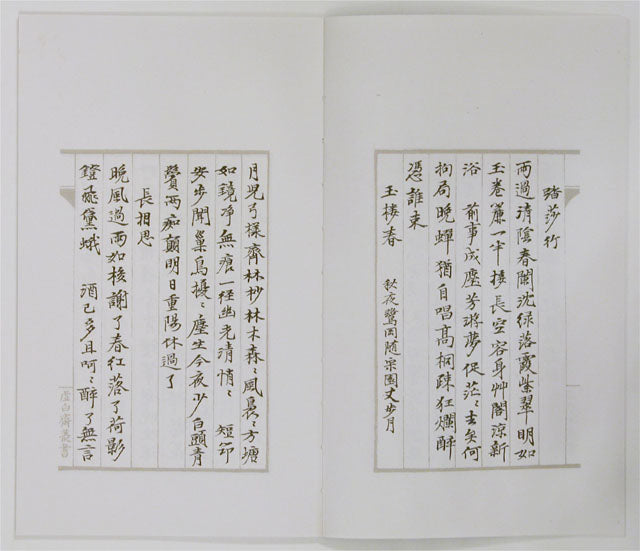 踏莎行
雨過清陰春閑沈綠落霞紫翠明如
玉卷簾一半接長空容身艸閣涼新
浴 前事成塵芳游夢促茫〻去矣何
拘局晚蟬猶自唱高桐疎狂爛醉
憑誰束
玉樓春 秋夜同隨宗園丈步月
月兒弓樣齊林杪林木森〻風裊〻方塘
如鏡淨無痕一徑幽光清悄〻 短筇
安步聞巢鳥擾〻塵生今夜少白頭青
鬢兩痴顛明日重陽休過了
長相思
晚風過雨如梭謝了春紅落了荷影
鐙飛黛蛾 酒已多且呵〻醉了無言
虛白齋叢書